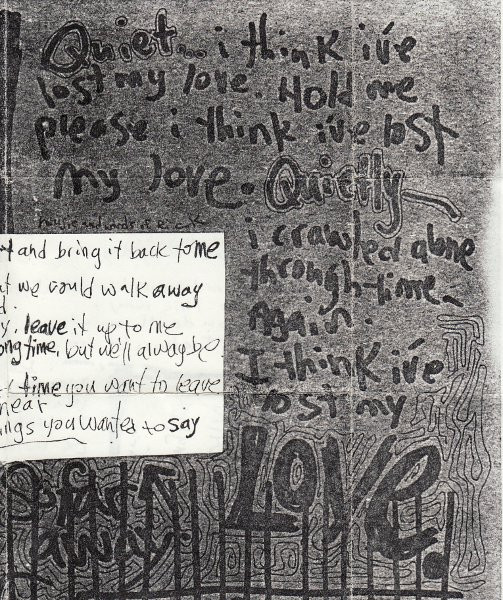 Quiet... i think i've
lost my love. Hold me
please i think i've lost
my love. Quietly
i crawled alone
through time
Again.
I think i've
lost my
LOVE.
and bring it back to me
we could walk away
leave it up to me
time, but we'll always be
time you want to leave
near
you wanted to say
So far
away.